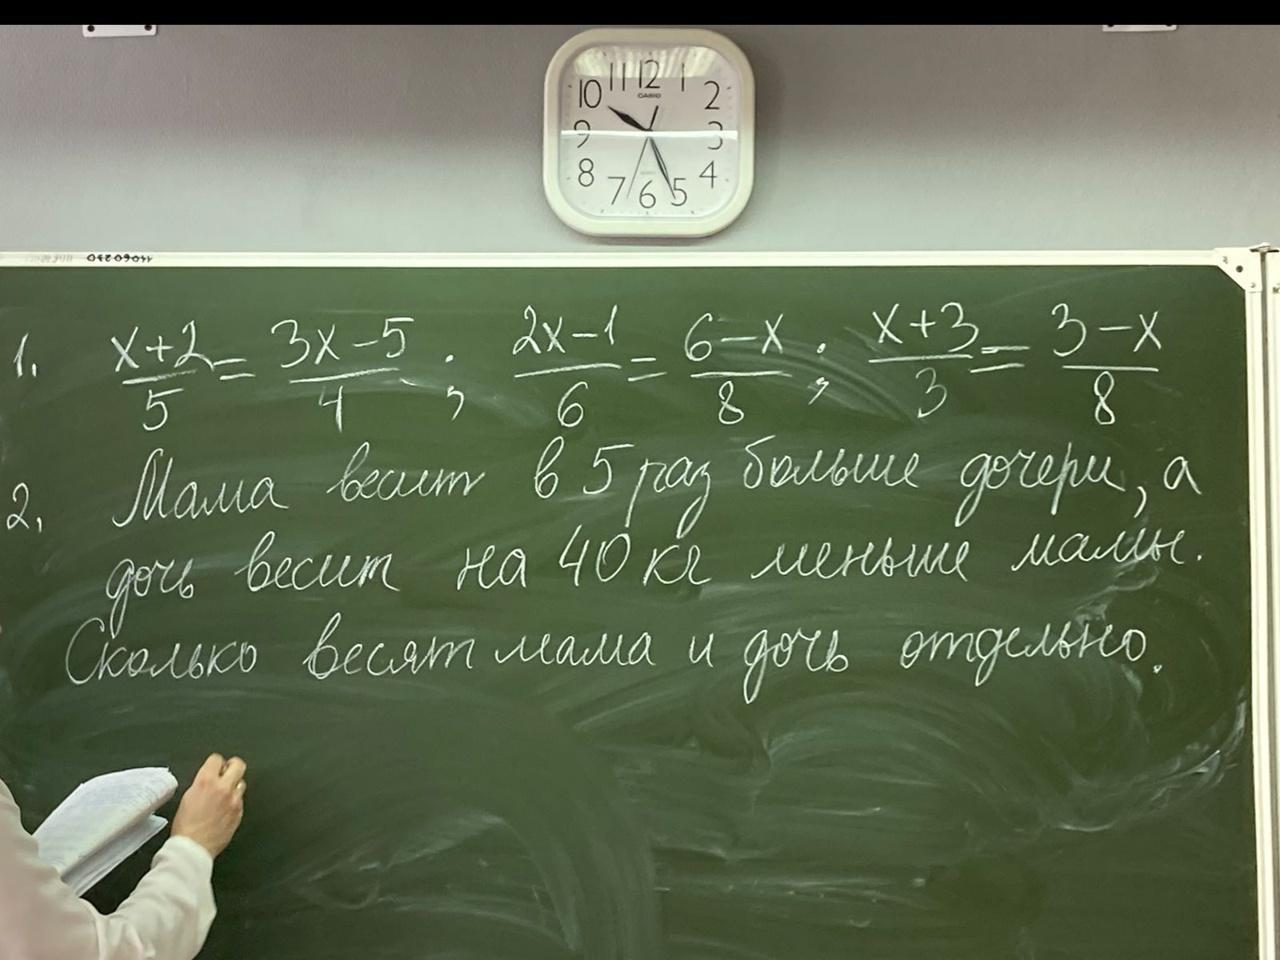 11 12 1
10 2
CASIO
9 3
8 4
7 6 5
1. x+2/5 = 3x-5/4 ; 2x-1/6 = 6-x/8 ; x+3/3 = 3-x/8
2. Мама весит в 5 раз больше дочери, а
дочь весит на 40 кг меньше мамы.
Сколько весят мама и дочь отдельно.